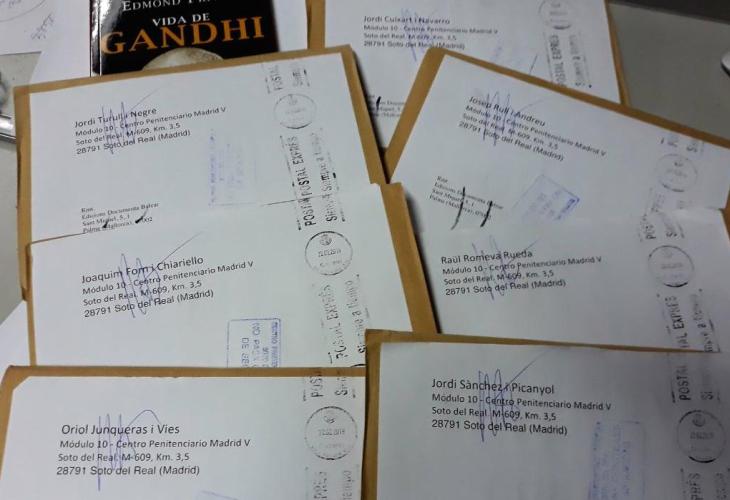 EDMOND
VIDA DE
GANDHI
Jordi Cuixart i Navarro
Módulo 10 - Centro Penitenciario Madrid V
Soto del Real, M-609, Km. 3,5
28791 Soto del Real (Madrid)
Jordi Turull i Negre
Módulo 10 - Centro Penitenciario Madrid V
Soto del Real, M-609, Km. 3,5
28791 Soto del Real (Madrid)
Rte.
Edicions Documenta Balear
Sant Miquel, 5, 1
Palma (Mallorca),
POSTAL EXPRÉS
Siempre a tiempo
Josep Rull i Andreu
Módulo 10 - Centro Penitenciario Madrid V
Soto del Real, M-609, Km. 3,5
28791 Soto del Real (Madrid)
Rte.
Edicions Documenta Balear
Sant Miquel, 5, 1
Palma (Mallorca), 07002
Joaquim Forn i Chiariello
Módulo 10 - Centro Penitenciario Madrid V
Soto del Real, M-609, Km. 3,5
28791 Soto del Real (Madrid)
POSTAL EXPRÉS
Siempre a tiempo
Raül Romeva Rueda
Módulo 10 - Centro Penitenciario Madrid V
Soto del Real, M-609, Km. 3,5
28791 Soto del Real (Madrid)
POSTAL EXPRÉS
Siempre a tiempo
Oriol Junqueras i Vies
Módulo 10 - Centro Penitenciario Madrid V
Soto del Real, M-609, Km. 3,5
28791 Soto del Real (Madrid)
Jordi Sànchez i Picanyol
Módulo 10 - Centro Penitenciario Madrid V
Soto del Real, M-609, Km. 3,5
28791 Soto del Real (Madrid)